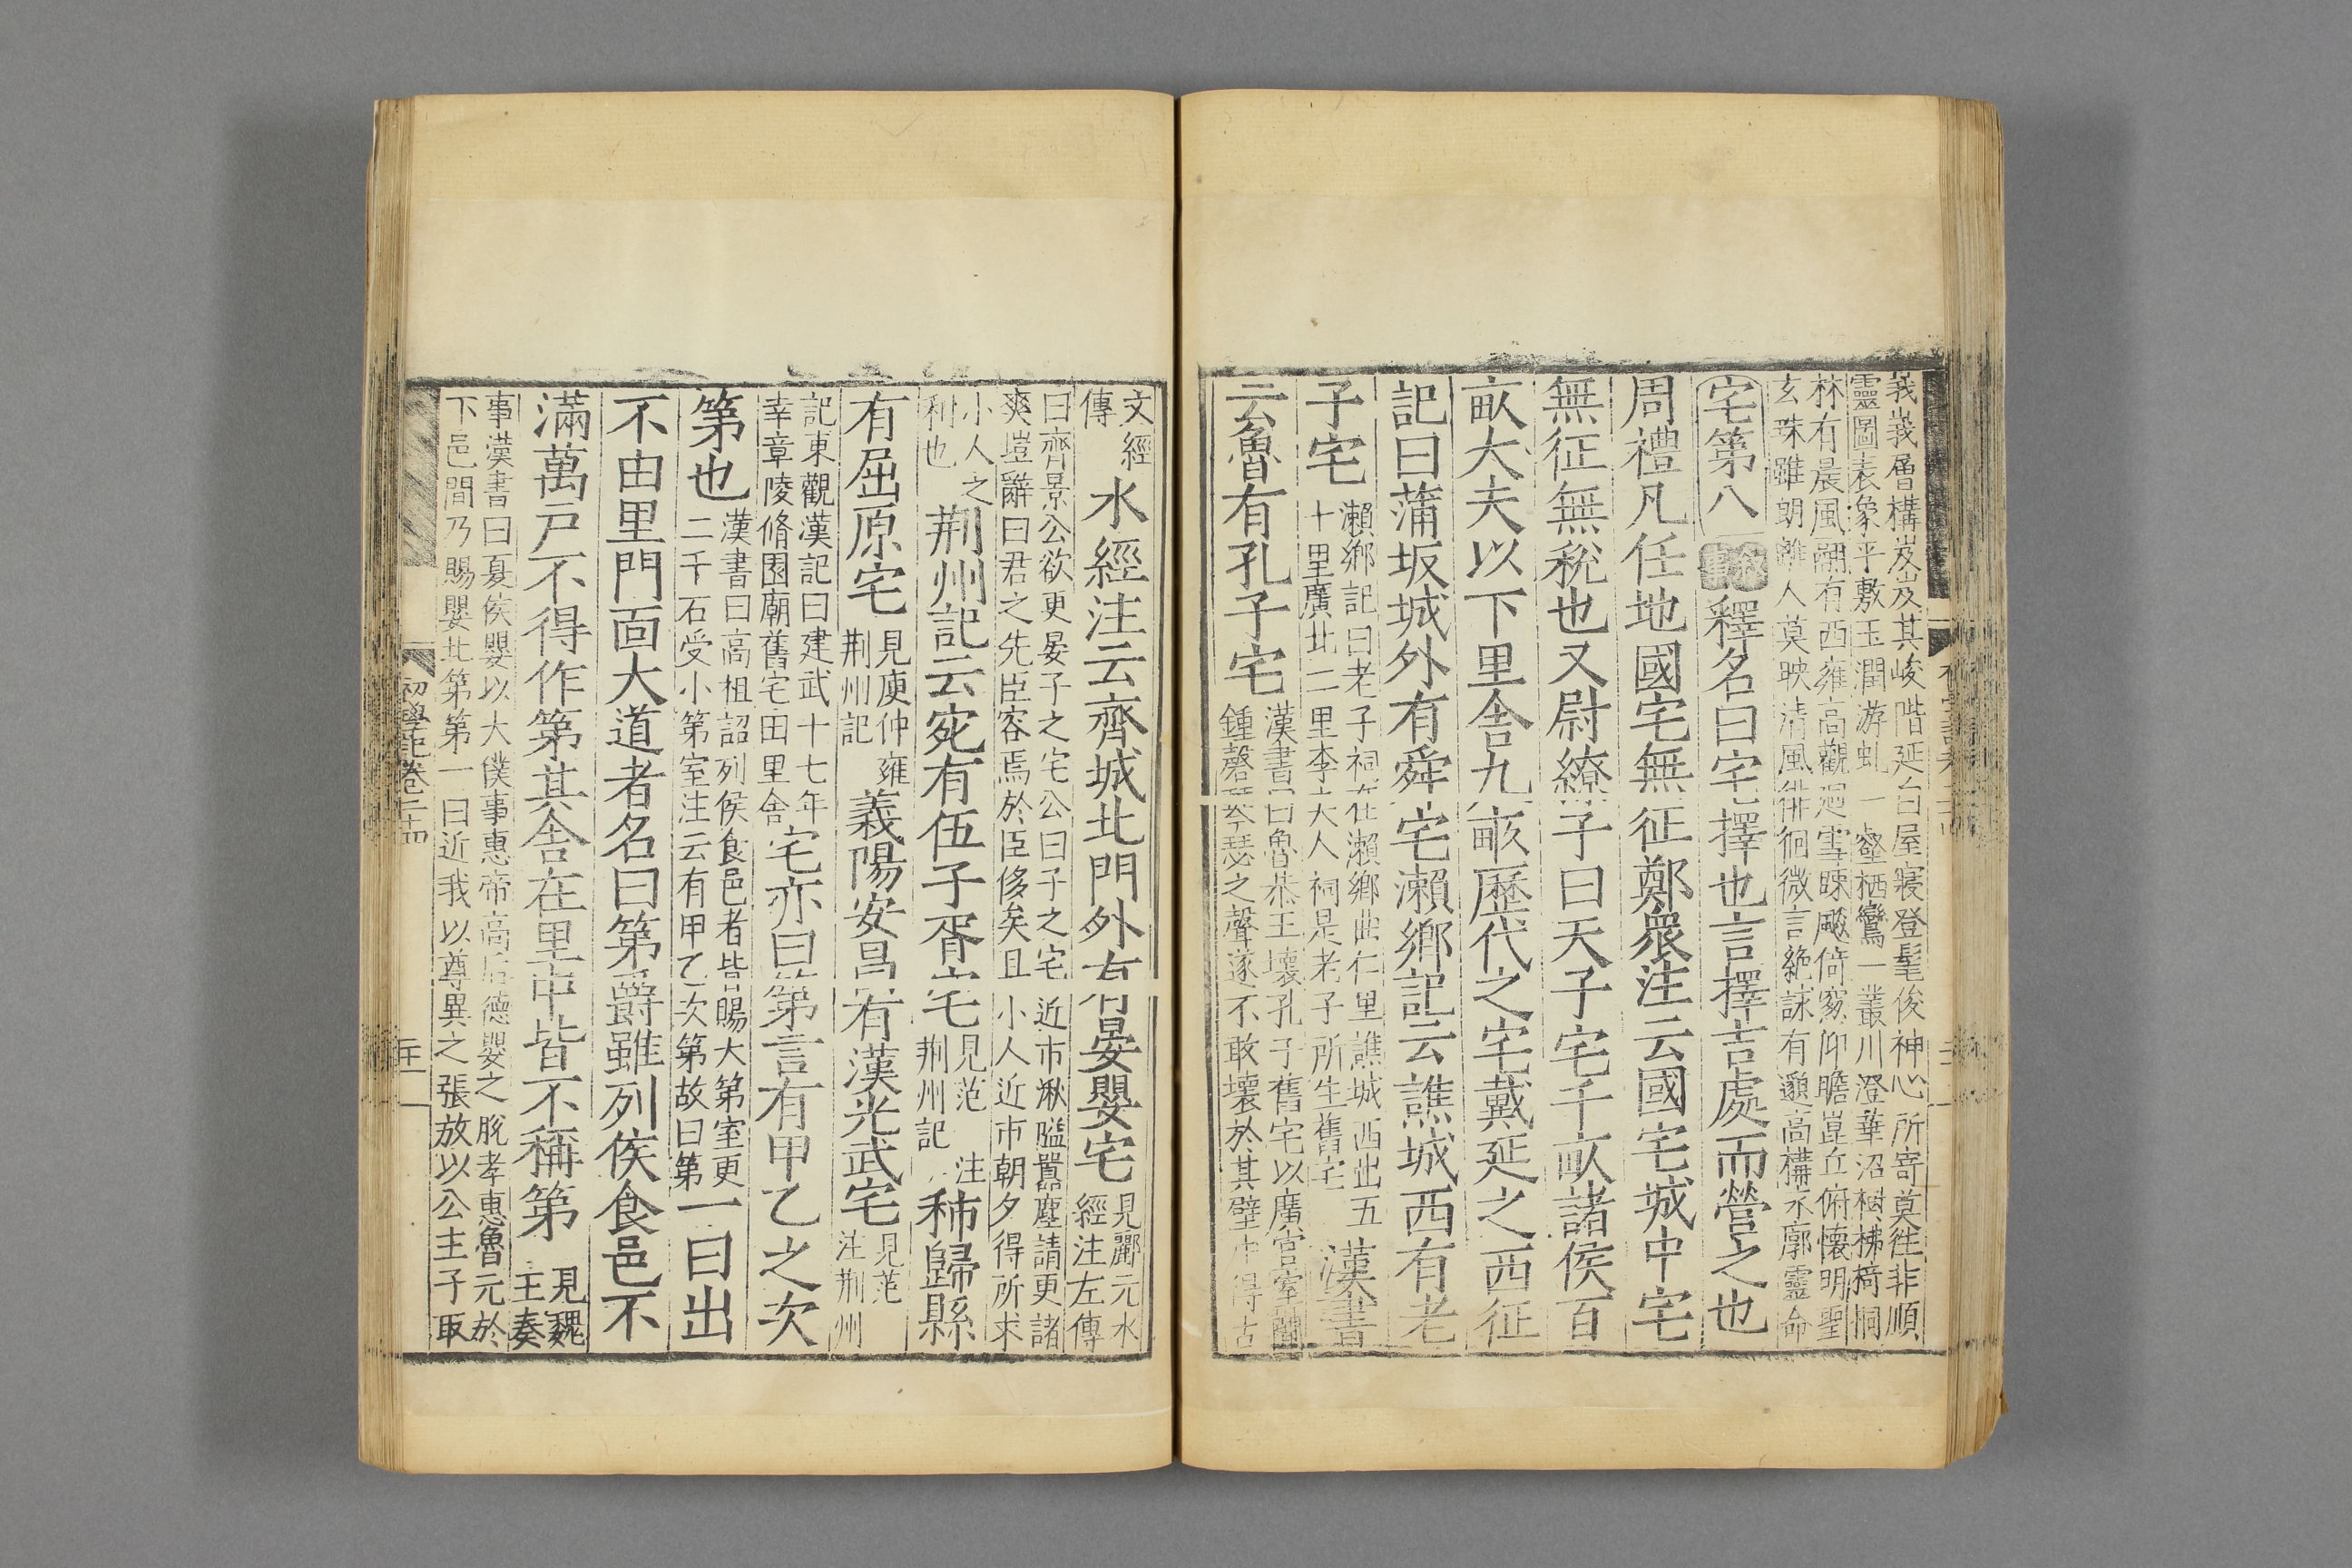 義義層構岌岌其峻階延白屋寢登髦俊神心所寄莫往非順
靈圖表象平敷玉潤游虬一壑栖鸞一叢川澄華沼樹拂椅桐
林有晨風翮有西雍高觀迴雪竦飈倚窈仰瞻崑丘俯懷明聖
玄珠雖朗離人莫映清風徘徊微言絶詠有邈高構丕廓靈命
宅第八 敘事 釋名曰宅擇也言擇吉處而營之也
周禮凡任地國宅無征鄭衆注云國宅城中宅
無征無税也又尉繚子曰天子宅千畝諸侯百
畝大夫以下里舍九畝歷代之宅戴延之西征
記曰蒲坂城外有舜宅瀨鄉記云譙城西有老
子宅 瀨鄉記曰老子祠在瀨鄉曲仁里譙城西出五
十里廣北二里李夫人祠是老子所生舊宅 漢書
云魯有孔子宅 漢書曰魯恭王壞孔子舊宅以廣宮室聞
鍾磬琴瑟之聲遂不敢壞於其壁中得古
文經
傳 水經注云齊城北門外有晏嬰宅 見酈元水
經注左傳
曰齊景公欲更晏子之宅公曰子之宅近市湫隘囂塵請更諸
爽塏辭曰君之先臣容焉於臣侈矣且小人近市朝夕得所求
小人之
利也 荆州記云宛有伍子胥宅 見范注
荆州記 秭歸縣
有屈原宅 見庾仲雍
荆州記 義陽安昌有漢光武宅 見范
注荆州
記東觀漢記曰建武十七年
幸章陵脩園廟舊宅田里舍 宅亦曰第言有甲乙之次
第也 漢書曰高祖詔列侯食邑者皆賜大第室更
二千石受小第室注云有甲乙次第故曰第 一曰出
不由里門面大道者名曰第爵雖列侯食邑不
滿萬戸不得作第其舍在里中皆不稱第 見魏
王奏
事漢書曰夏侯嬰以大僕事惠帝高后德嬰之脱孝惠魯元於
下邑間乃賜嬰北第第一曰近我以尊異之張放以公主子取
初學記卷二十四